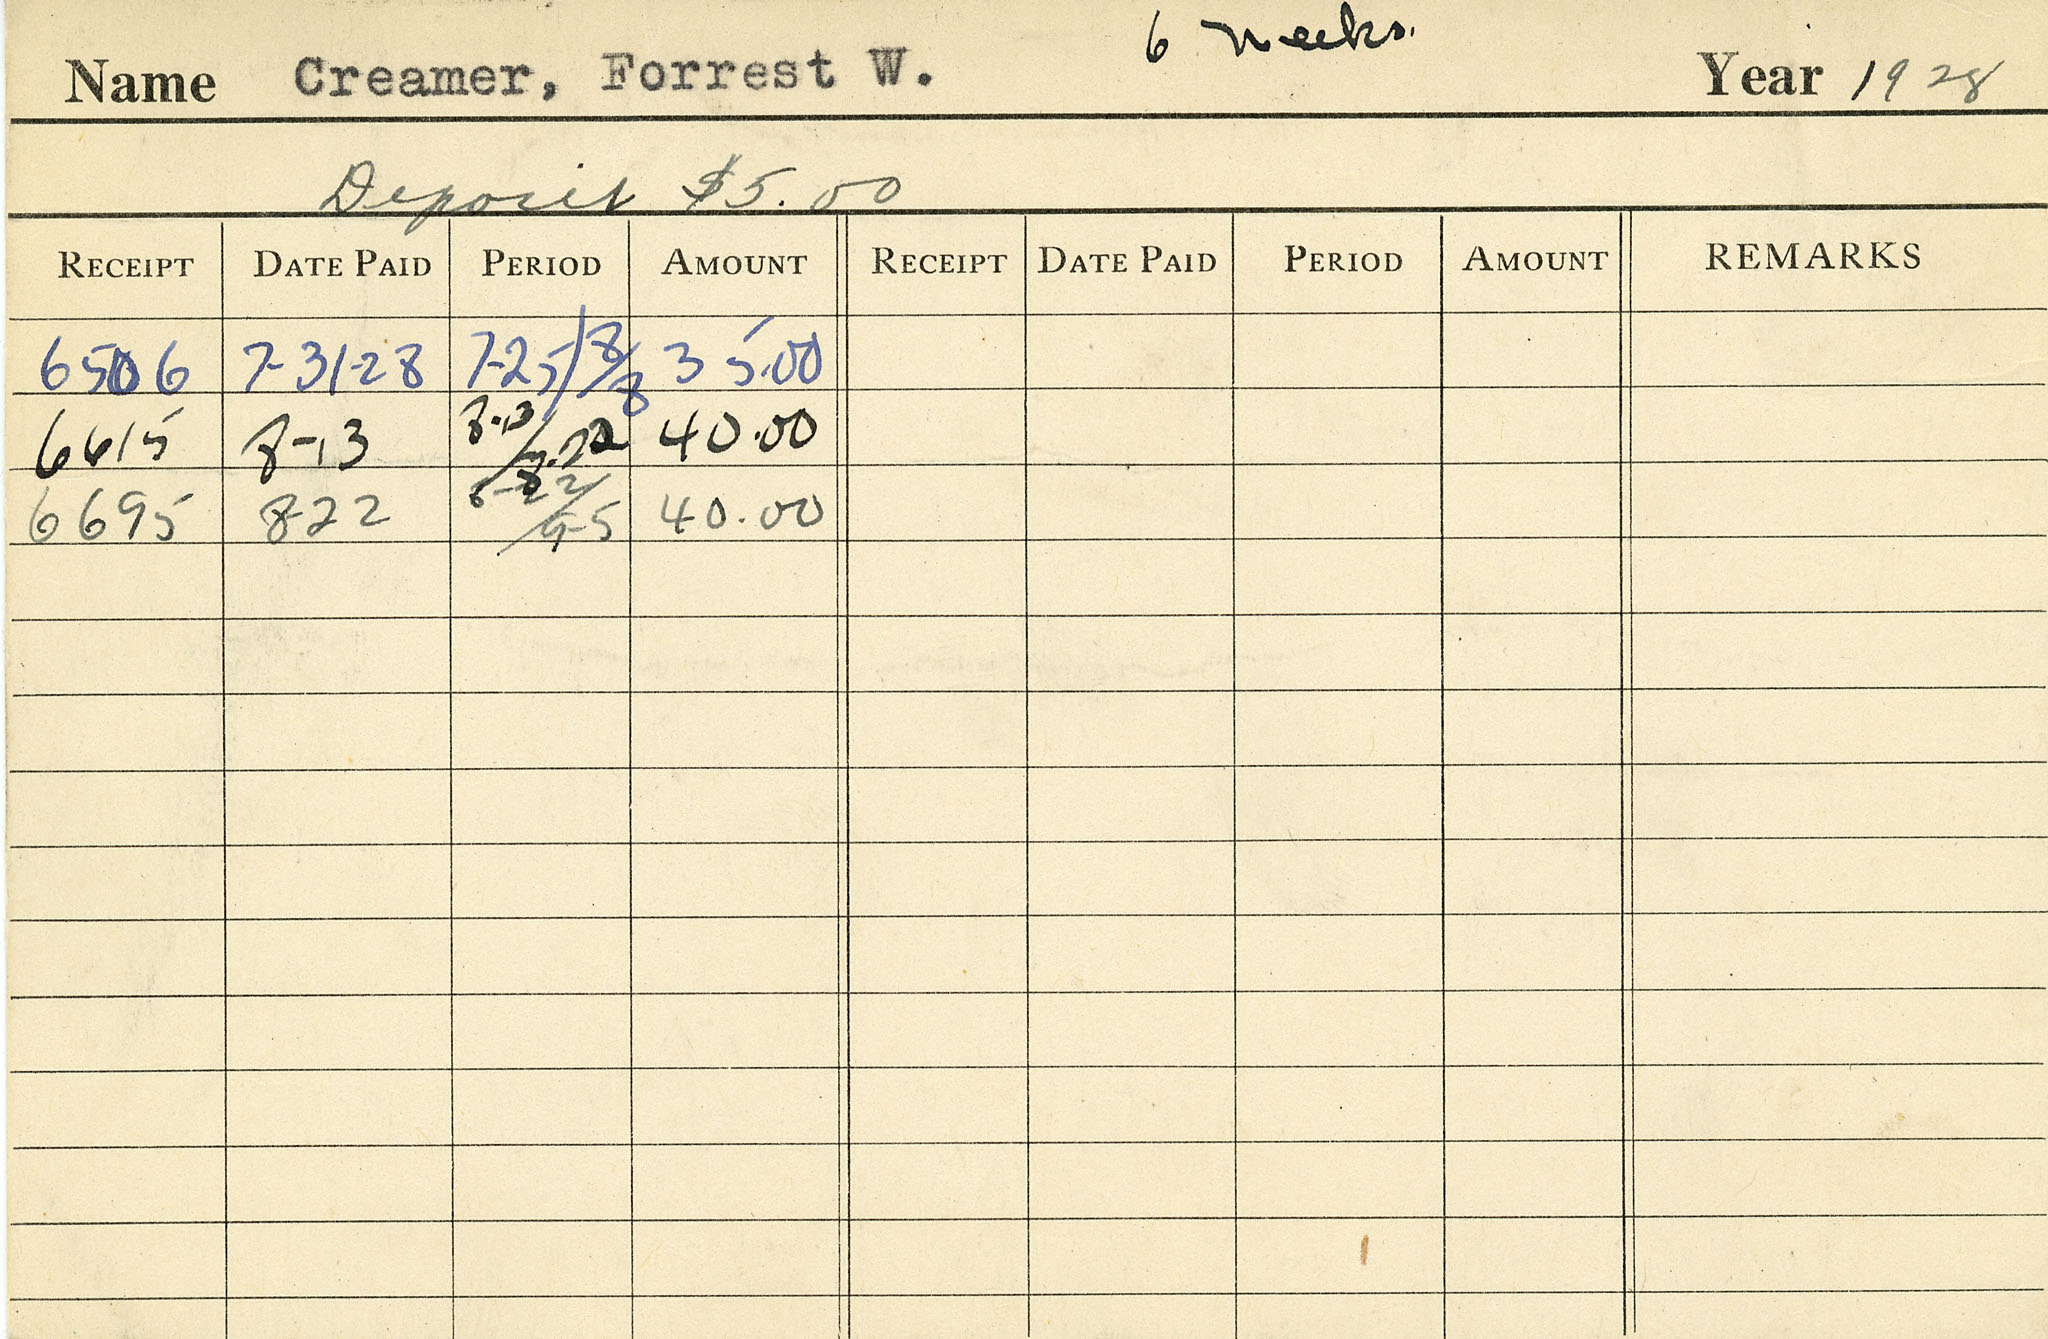 Name Creamer, Forrest W. 6 weeks. Year 1928
Deposit $5.00
RECEIPT DATE PAID PERIOD AMOUNT RECEIPT DATE PAID PERIOD AMOUNT REMARKS
6506 7-31-28 7-25/8/8 35.00
6615 8-13 8-13/ 40.00
6695 8-22 8-22/9-5 40.00